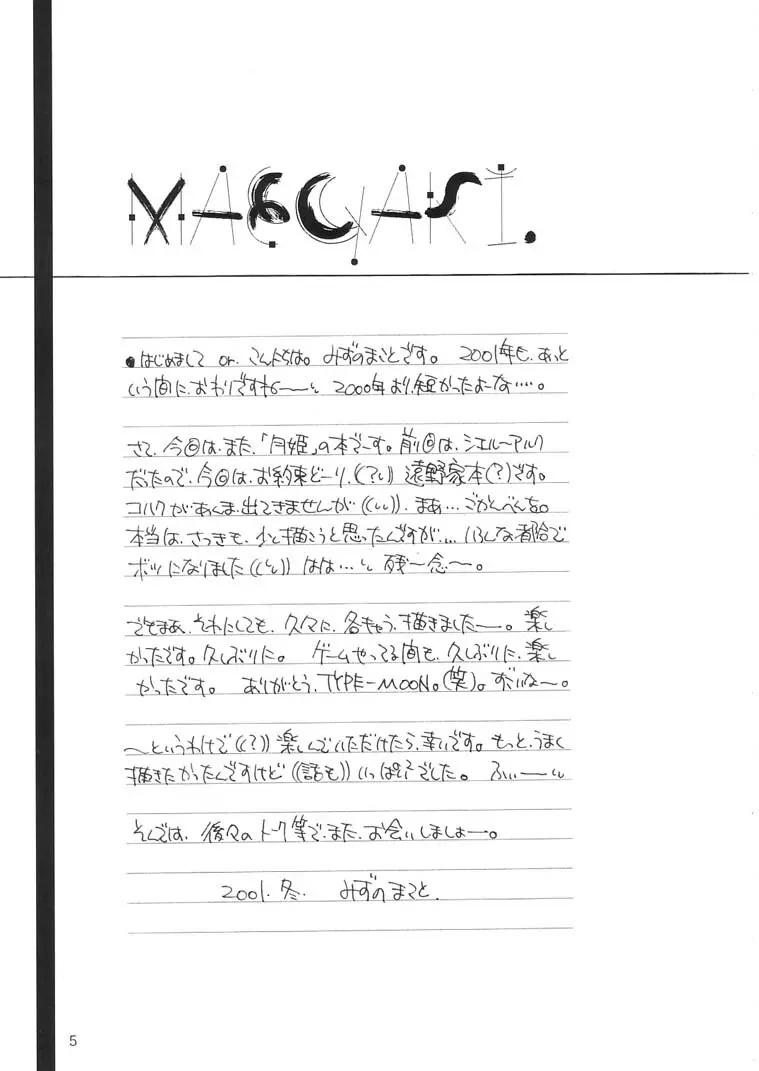 MAEGAKI.
●はじめまして or. こんにちは。みずのまことです。 2001年も、あっと
いう間に、おわりですねぇ〜〜い 2000年より、短かったよーな‥‥。
さて、今回は、また、「月姫」の本でーす。前回は、シエル〜アルク
だたので、今回は、お約束どーり、(?い) 遠野家本(?)です。
コハクが、あんま、出てきませんが((いい))、まぁ… ごかんべんを。
本当は、さっきも、少し描こうと思ったんですが、… いろんな都合で
ボツになりました((い)) はは…い 残〜念〜。
でもまあ、それにしても、久々に、各きゃら、描きましたー。楽し
かったです。久しぶりに。 ゲームやってる間も、久しぶりに、楽し
かったです。 ありがとう、TYPE-MOON。(笑)。すごいな〜。
〜というわけで((?)) 楽しんでいただけたら、幸いです。もっと、うまく
描きたかったんですけど((話も)) いっぱいでした。 ふぃ〜い
そんでは、後々のトーク等で、また、お会いしましょー。
2001. 冬. みずのまこと.
5